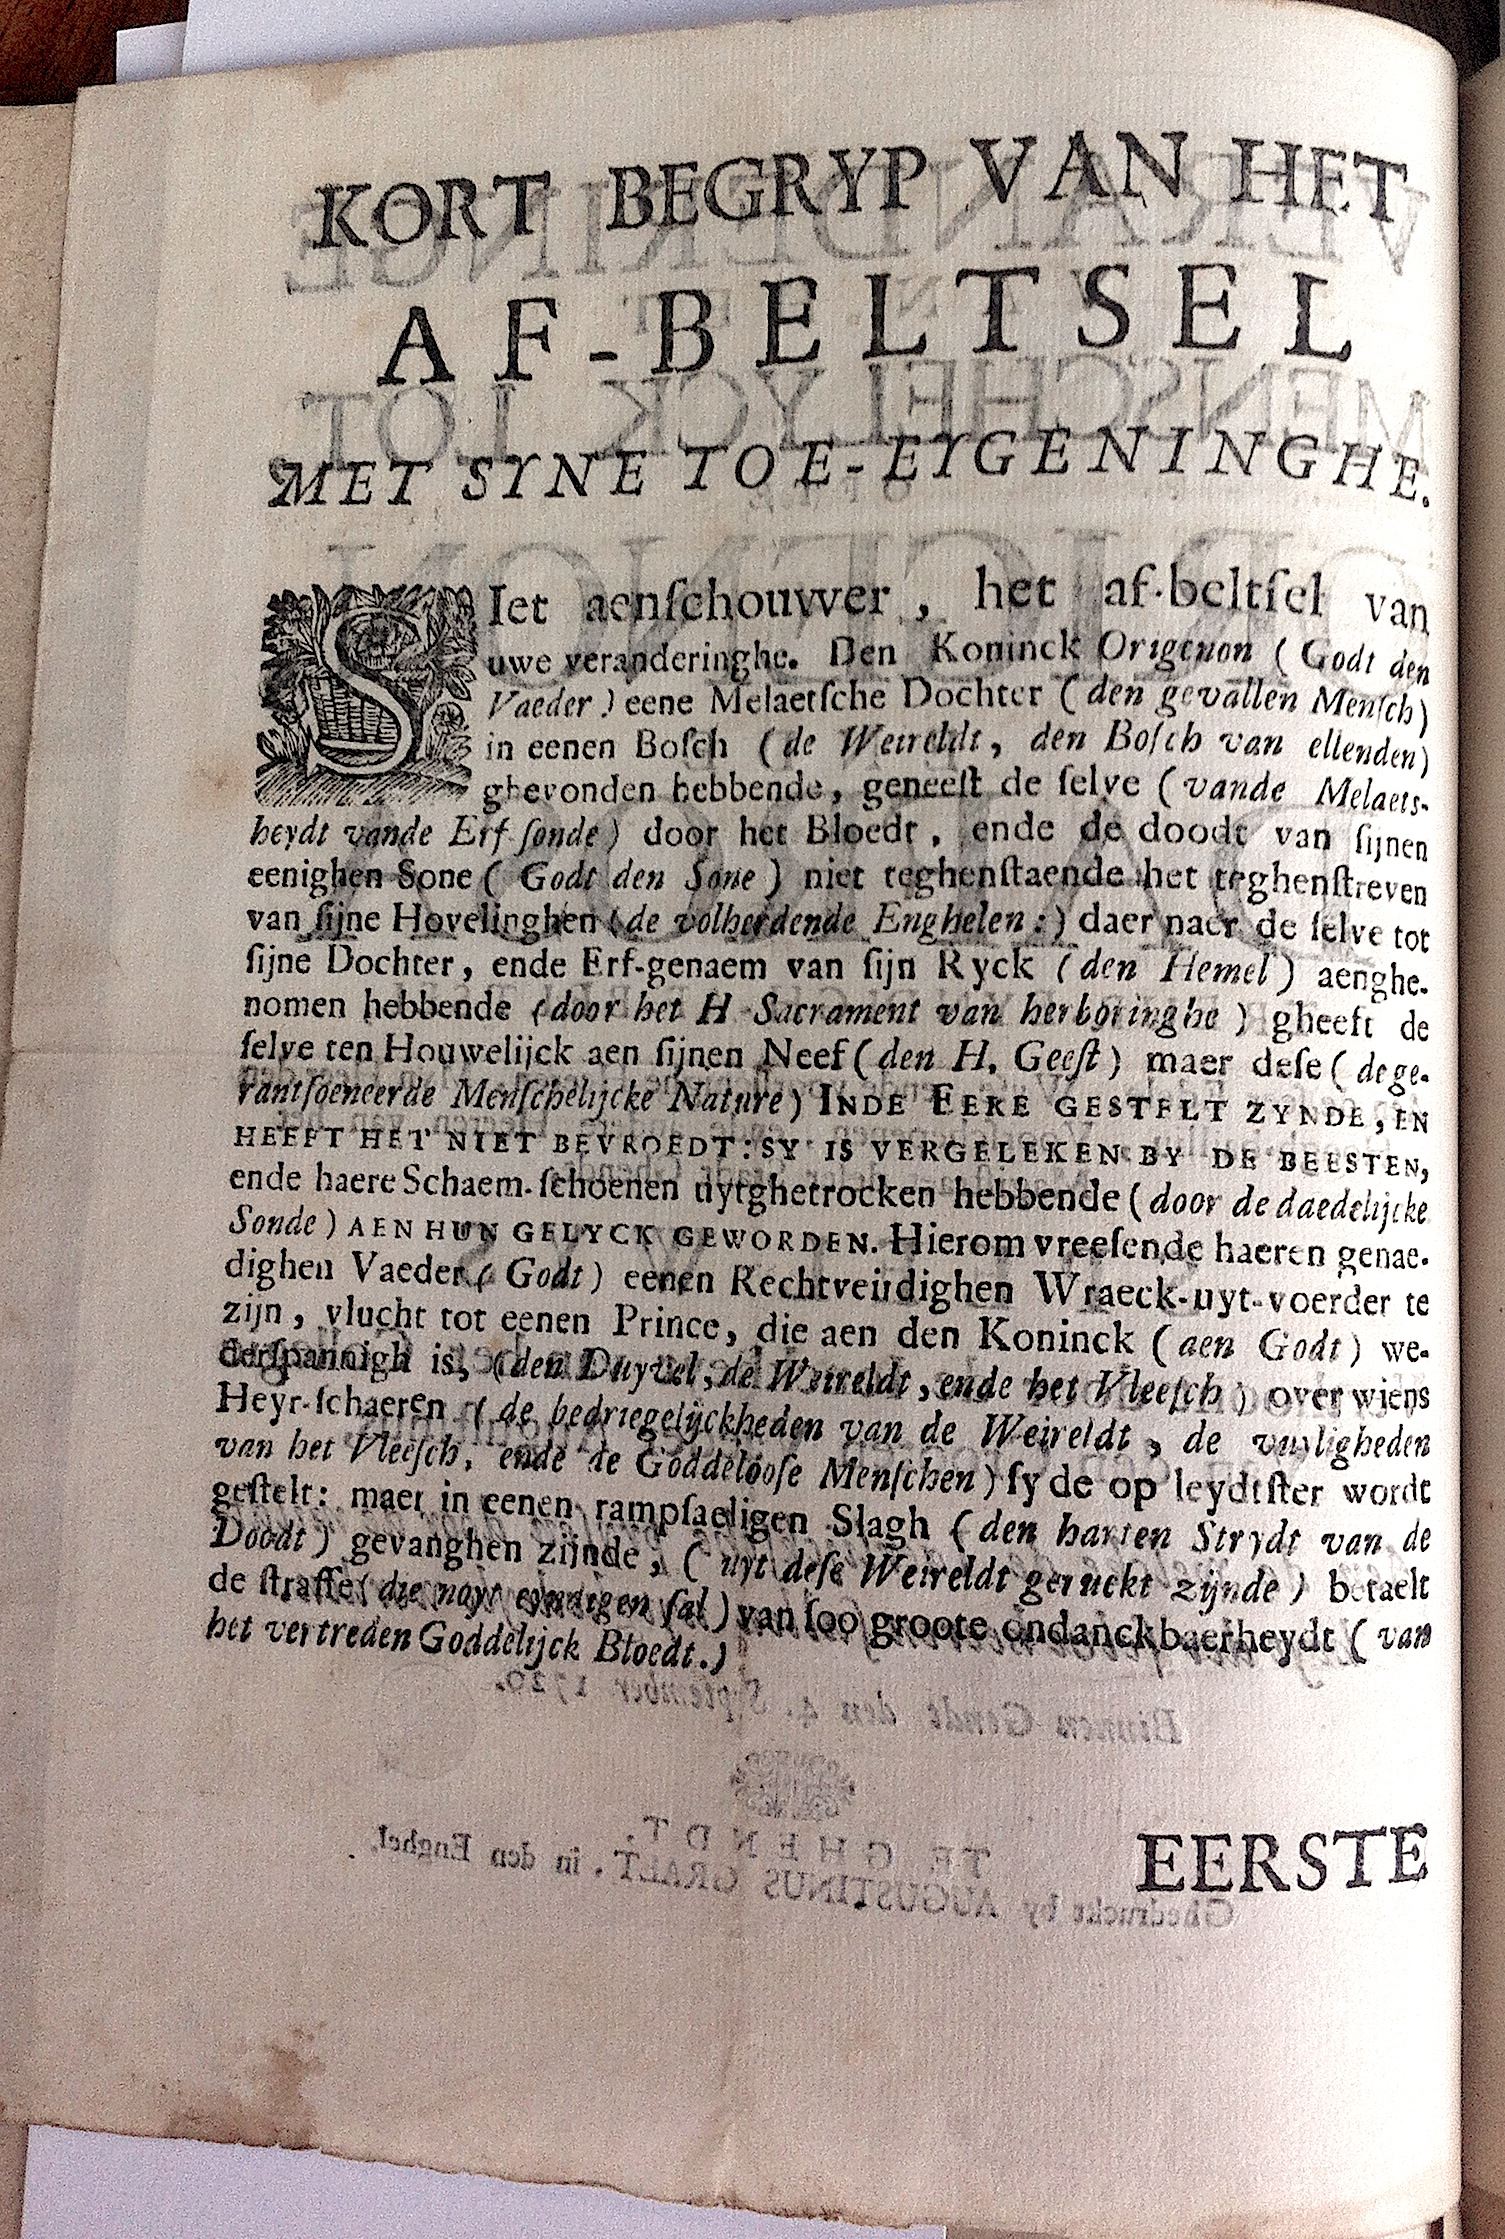 KORT BEGRYP VAN HET
AF-BELTSEL
MET SYNE TOE-EYGENINGHE.
SIet aenſchouwer, het af-beltſel van
uwe veranderinghe. Den Koninck Origenon (Godt den
Vaeder) eene Melaetſche Dochter (den gevallen Menſch)
in eenen Boſch (de Weireldt, den Boſch van ellenden)
ghevonden hebbende, geneeſt de ſelve (vande Melaets-
heydt vande Erf-ſonde) door het Bloedt, ende de doodt van ſijnen
eenighen Sone (Godt den Sone) niet teghenſtaende het teghenſtreven
van ſijne Hovelinghen (de volherdende Enghelen:) daer naer de ſelve tot
ſijne Dochter, ende Erf-genaem van ſijn Ryck (den Hemel) aenghe-
nomen hebbende (door het H Sacrament van herboringhe) gheeft de
ſelve ten Houwelijck aen ſijnen Neef (den H. Geeſt) maer deſe (de ge-
rantſoeneerde Menſchelijcke Nature) INDE EERE GESTELT ZYNDE, EN
HEEFT HET NIET BEVROEDT: SY IS VERGELEKEN BY DE BEESTEN,
ende haere Schaem-ſchoenen uytghetrocken hebbende (door de daedelijcke
Sonde) AEN HUN GELYCK GEWORDEN. Hierom vreeſende haeren genae-
dighen Vaeder (Godt) eenen Rechtveirdighen Wraeck-uyt-voerder te
zijn, vlucht tot eenen Prince, die aen den Koninck (aen Godt) we-
derſpannigh is, (den Duyvel, de Weireldt, ende het Vleeſch) over wiens
Heyr-ſchaeren (de bedriegelijckheden van de Weireldt, de vuyligheden
van het Vleeſch, ende de Goddelooſe Menſchen) ſy de op leydtſter wordt
geſtelt: maer in eenen rampſaeligen Slagh (den harten Strydt van de
Doodt) gevanghen zijnde, (uyt deſe Weireldt geruckt zijnde) betaelt
de ſtraffe (die noyt eyndigen ſal) van ſoo groote ondanckbaerheydt (van
het vertreden Goddelijck Bloedt.)
EERSTE